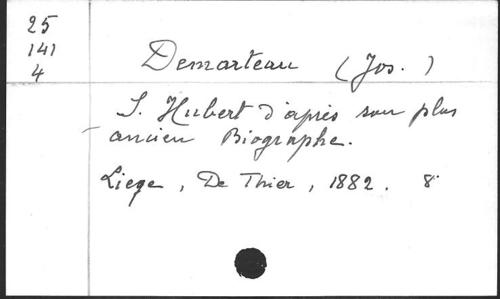 25
141
4
Demarteau (Jos.)
S. Hubert d'après son plus
ancien Biographe.
Liege, De Thier, 1882. 8°